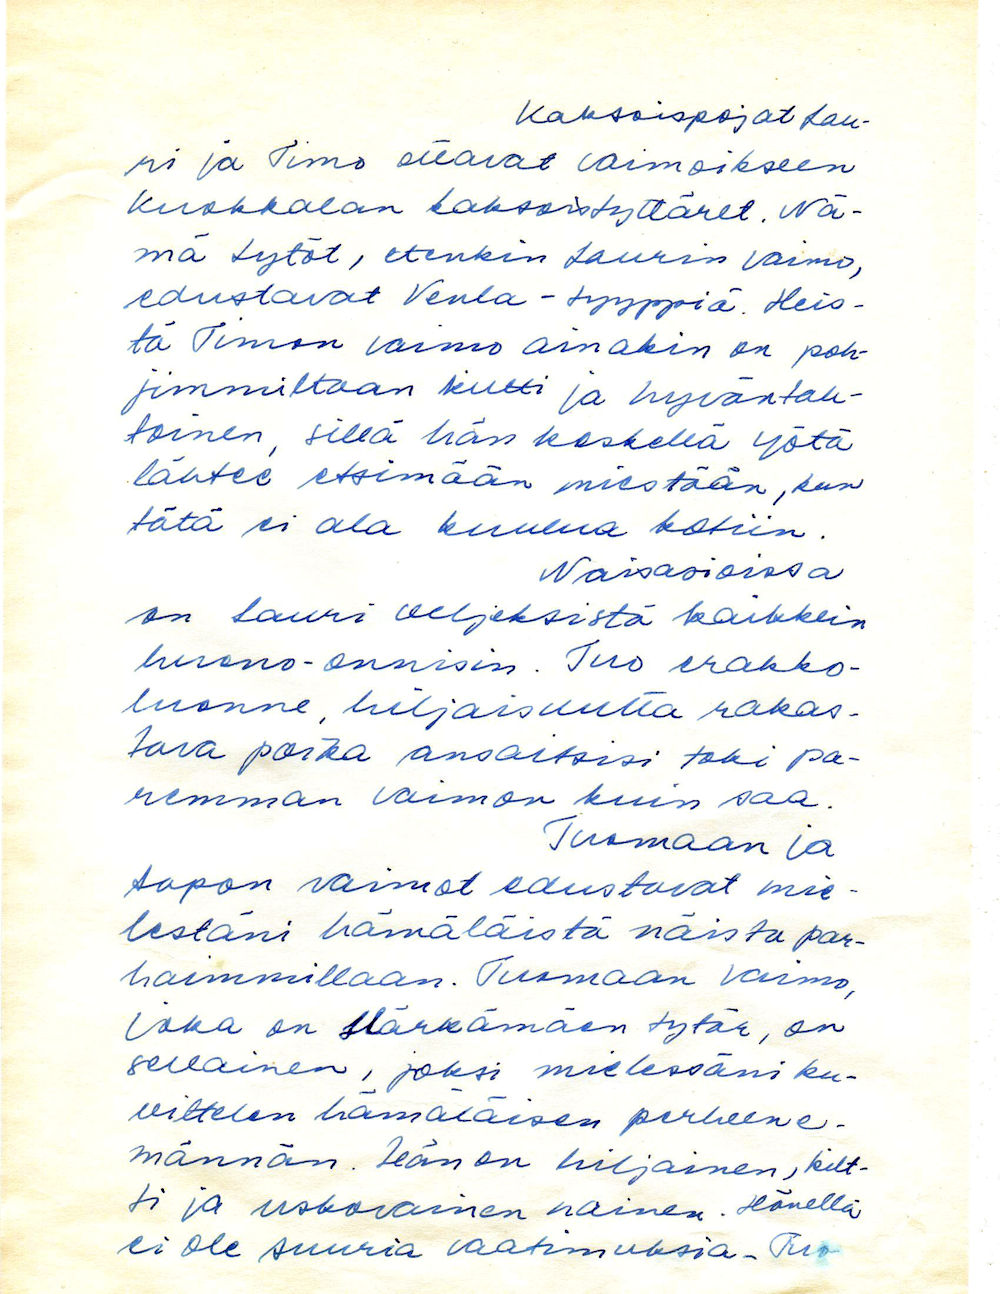 Kaksoispojat Lau-
ri ja Timo ottavat vaimoikseen
Kuokkalan kaksoistyttäret. Nä-
mä tytöt, etenkin Laurin vaimo,
edustavat Venla-tyyppiä. Heis-
tä Timon vaimo ainakin on poh-
jimmiltaan kiltti ja hyväntah-
toinen, sillä hän keskellä yötä
lähtee etsimään miestään, kun
tätä ei ala kuulua kotiin.
Naisasioissa
on Lauri veljeksistä kaikkein
huono-onnisin. Tuo erakko-
luonne, hiljaisuutta rakas-
tava poika ansaitsisi toki pa-
remman vaimon kuin saa.
Tuomaan ja
Aapon vaimot edustavat mie-
lestäni hämäläistä naista par-
haimmillaan. Tuomaan vaimo,
joka on Härkämäen tytär, on
sellainen, joksi mielessäni ku-
vittelen hämäläisen perheene-
männän. Hän on hiljainen, kilt-
ti ja uskovainen nainen. Hänellä
ei ole suuria vaatimuksia. Tuo